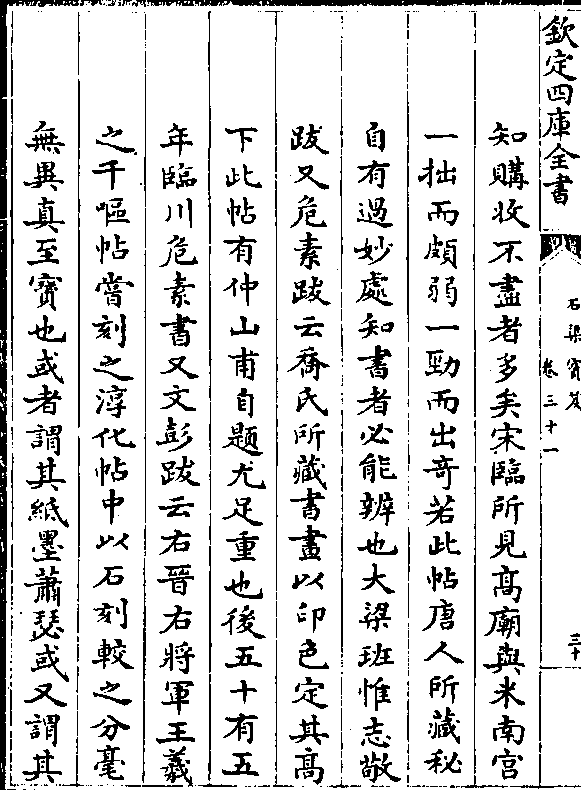 欽定四庫全書
石渠寳笈
卷三十一
三十
知購收不盡者多矣宋臨所見髙廟與米南宫
一拙而頗弱一勁而出竒若此帖唐人所藏秘
自有過妙處知書者必能辨也大梁班惟志敬
跋又危素跋云喬氏所藏書畫以印色定其髙
下此帖有仲山甫自題尤足重也後五十有五
年臨川危素書又文彭跋云右晉右將軍王羲
之千嘔帖嘗刻之淳化帖中以石刻較之分毫
無異真至寳也或者謂其紙墨蕭瑟或又謂其